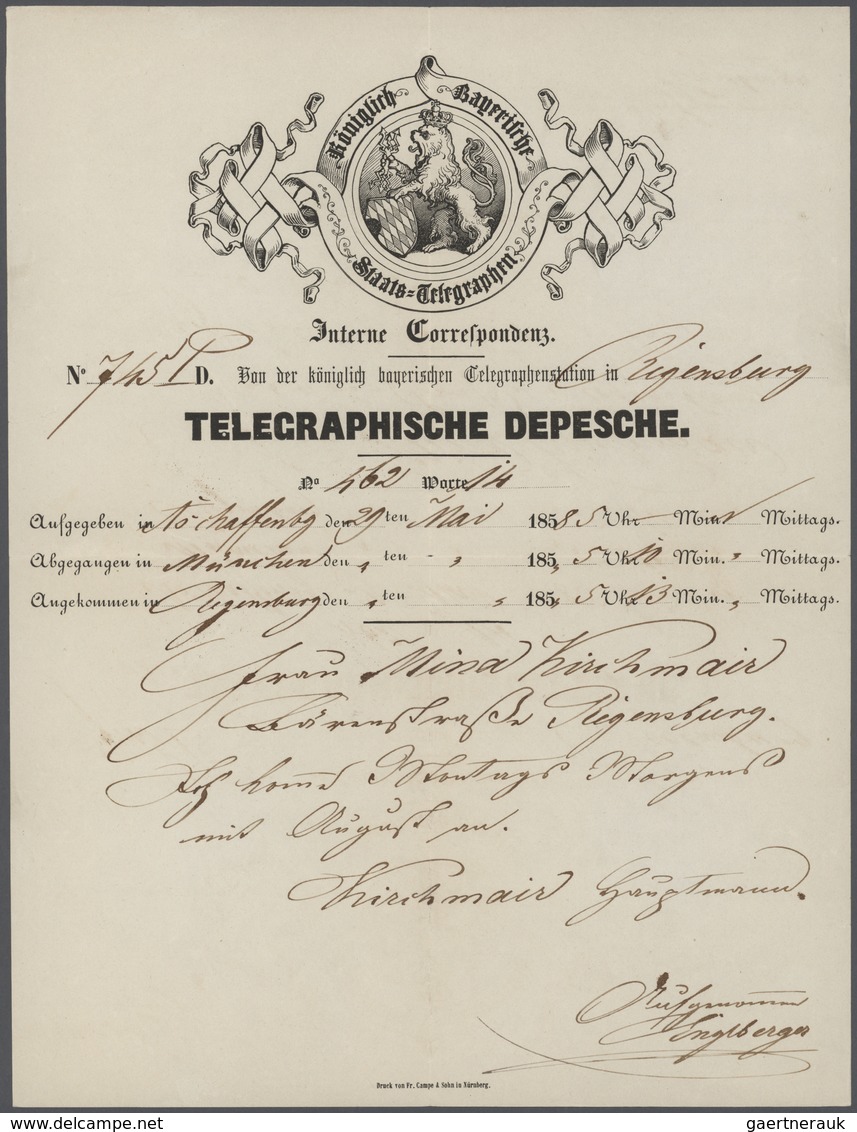 Königlich Bayerische
Staats=Telegraphen
Interne Correspondenz.
No 745 D. Von der königlich bayerischen Telegraphenstation in Regensburg
TELEGRAPHISCHE DEPESCHE.
No 462 Worte 14
Aufgegeben in Aschaffenbg den 29ten Mai 1858 5 Uhr — Min. Mittags.
Abgegangen in München den „ ten „ 185„ 5 Uhr 10 Min. „ Mittags.
Angekommen in Regensburg den „ ten „ 185„ 5 Uhr 13 Min. „ Mittags.
Frau Mina Kirchmair
Bärenstraße Regensburg.
Ich komme Montags Morgens
mit August an.
Kirchmair Hauptmann.
Aufgenommen
Englberger
Druck von Fr. Campe & Sohn in Nürnberg.
www.delcampe.net
gaertnerauk